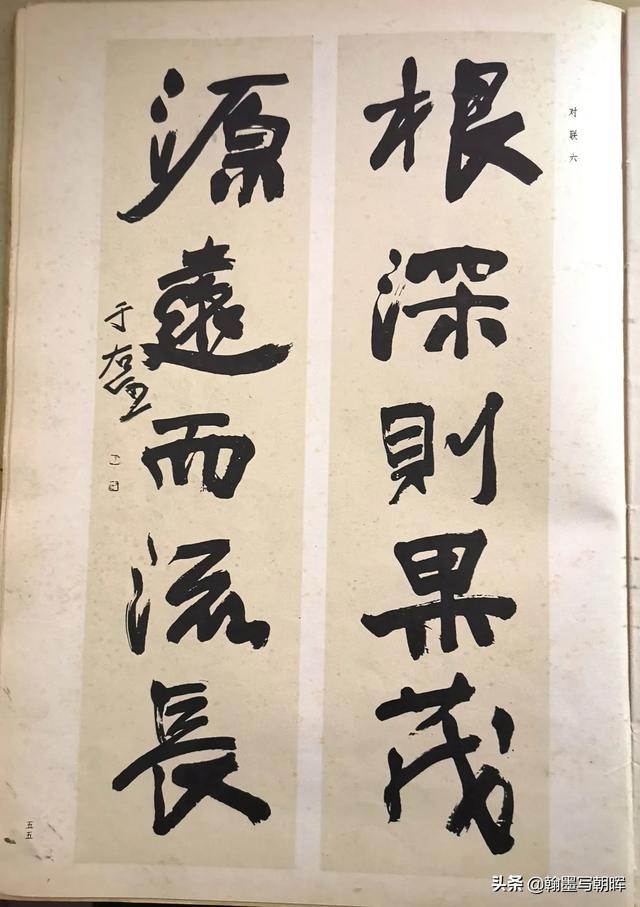 对联六
根深則果茂
源遠而流長
于右任
五五
头条 @翰墨写朝晖